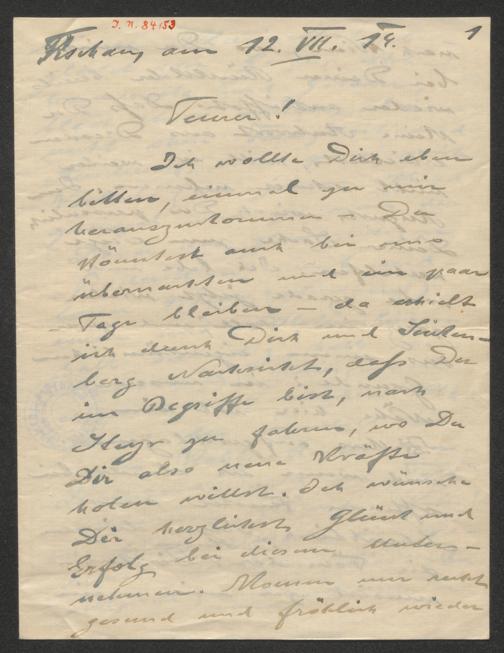 J. N. 84153
1
Fischau, am 12. VII. 19.
Teurer!
Ich wollte Dich eben
bitten, einmal zu mir
herauszukommen – Du
könntest auch bei uns
übernachten und ein paar
Tage bleiben – da erhielt
ich durch Dich und
berg Nachricht, daß Du
im Begriffe bist, nach
Steyr zu fahren, wo Du
Dir also neue Kräfte
holen willst. Ich wünsche
Dir herzlichst Glück und
Erfolg bei diesem Unter-
nehmen. Komm nur recht
gesund und fröhlich wieder